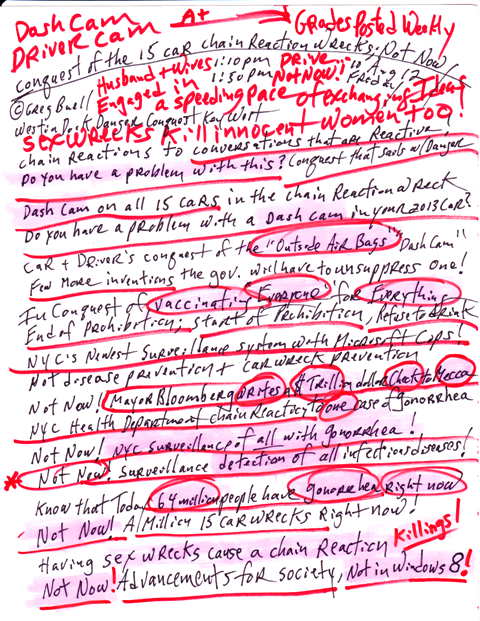 Dash Cam A+ Grades Posted Weekly
Driver Cam
Conquest of the 15 car chain Reaction wrecks: Not Now!
Husband + Wives 1:10pm Drive 10 Aug 12
© Greg Buell 1:50pm Not Now! Friday
Engaged in a speeding pace of exchanging Ideas
Westin Dock Danger Conquest Key West
Sex wrecks Kill innocent women too!
chain reactions to conversations that are Reactive!
Do you have a problem with this? Conquest that sails w/ Danger
Dash Cam on all 15 cars in the chain Reaction wreck
Do you have a problem with a Dash cam in your 2013 car?
Car + Driver's conquest of the "Outside Air Bags" "Dash Cam"
Few More inventions the gov. will have to unsuppress one!
In Conquest of vaccinating "Everyone" for Everything
End of Prohibition; start of Prohibition, Refuse to Drink
NYC's Newest Surveillance system with Microsoft Cops!
Not disease prevention + car wreck prevention
Not Now! Mayor Bloomberg writes a $Trillion dollar Check to Mecca
NYC Health Department chain Reaction to one case of gonorrhea
Not Now! NYC surveillance of all with gonorrhea!
* Not Now! Surveillance detection of all infectious diseases!
Know that Today 64 million people have gonorrhea Right now
Not Now! A Million 15 car wrecks Right now?
Having sex wrecks cause a chain Reaction Killings!
Not Now! Advancements for society, Not in Windows 8!